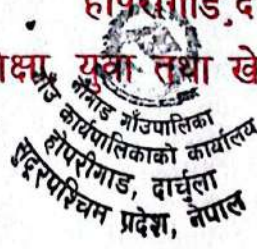 होपरीगाड, द
क्षा, युवा तथा खे
नौगाड गाँउपालिका
गाँउ कार्यपालिकाको कार्यालय
होपरीगाड, दार्चुला
सुदूरपश्चिम प्रदेश, नेपाल